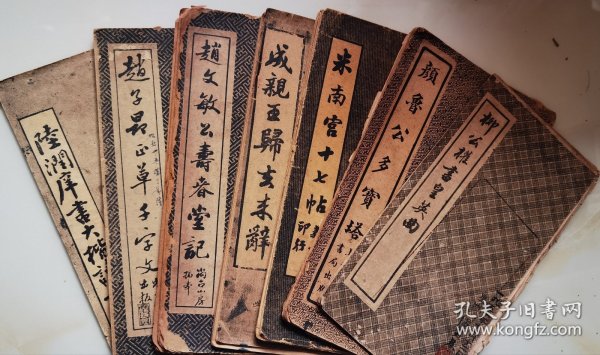 陸潤庠書大楷
趙子昂正草千字文
趙文敏公壽春堂記
成親王歸去來辭
米南宮十七帖
印行
顏魯公多寶塔
書局出
柳公權書皇英曲
孔夫子旧书网
www.kongfz.com